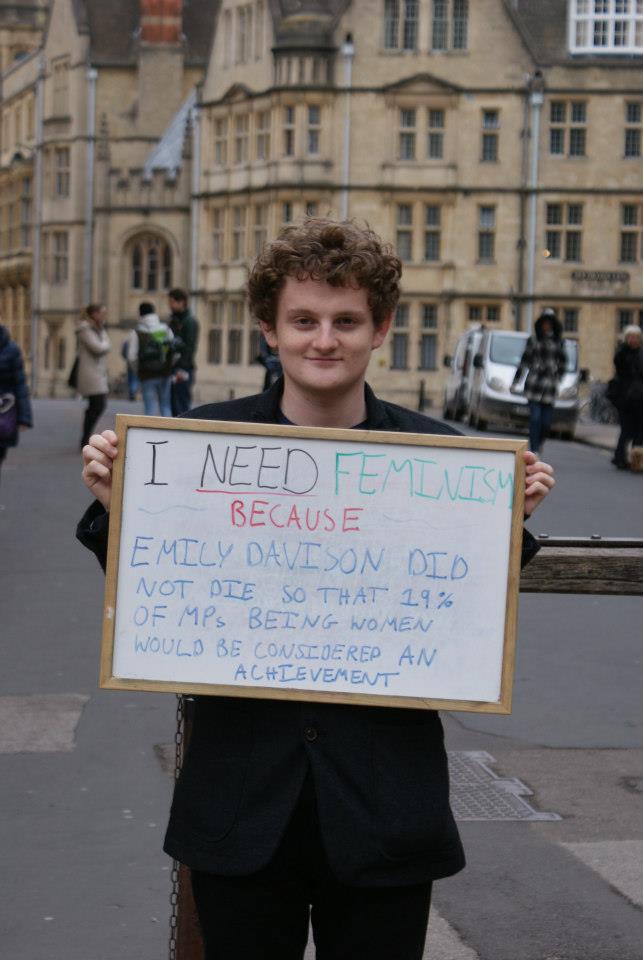 I NEED FEMINISM
BECAUSE
EMILY DAVISON DID
NOT DIE SO THAT 19%
OF MPs BEING WOMEN
WOULD BE CONSIDERED AN
ACHIEVEMENT